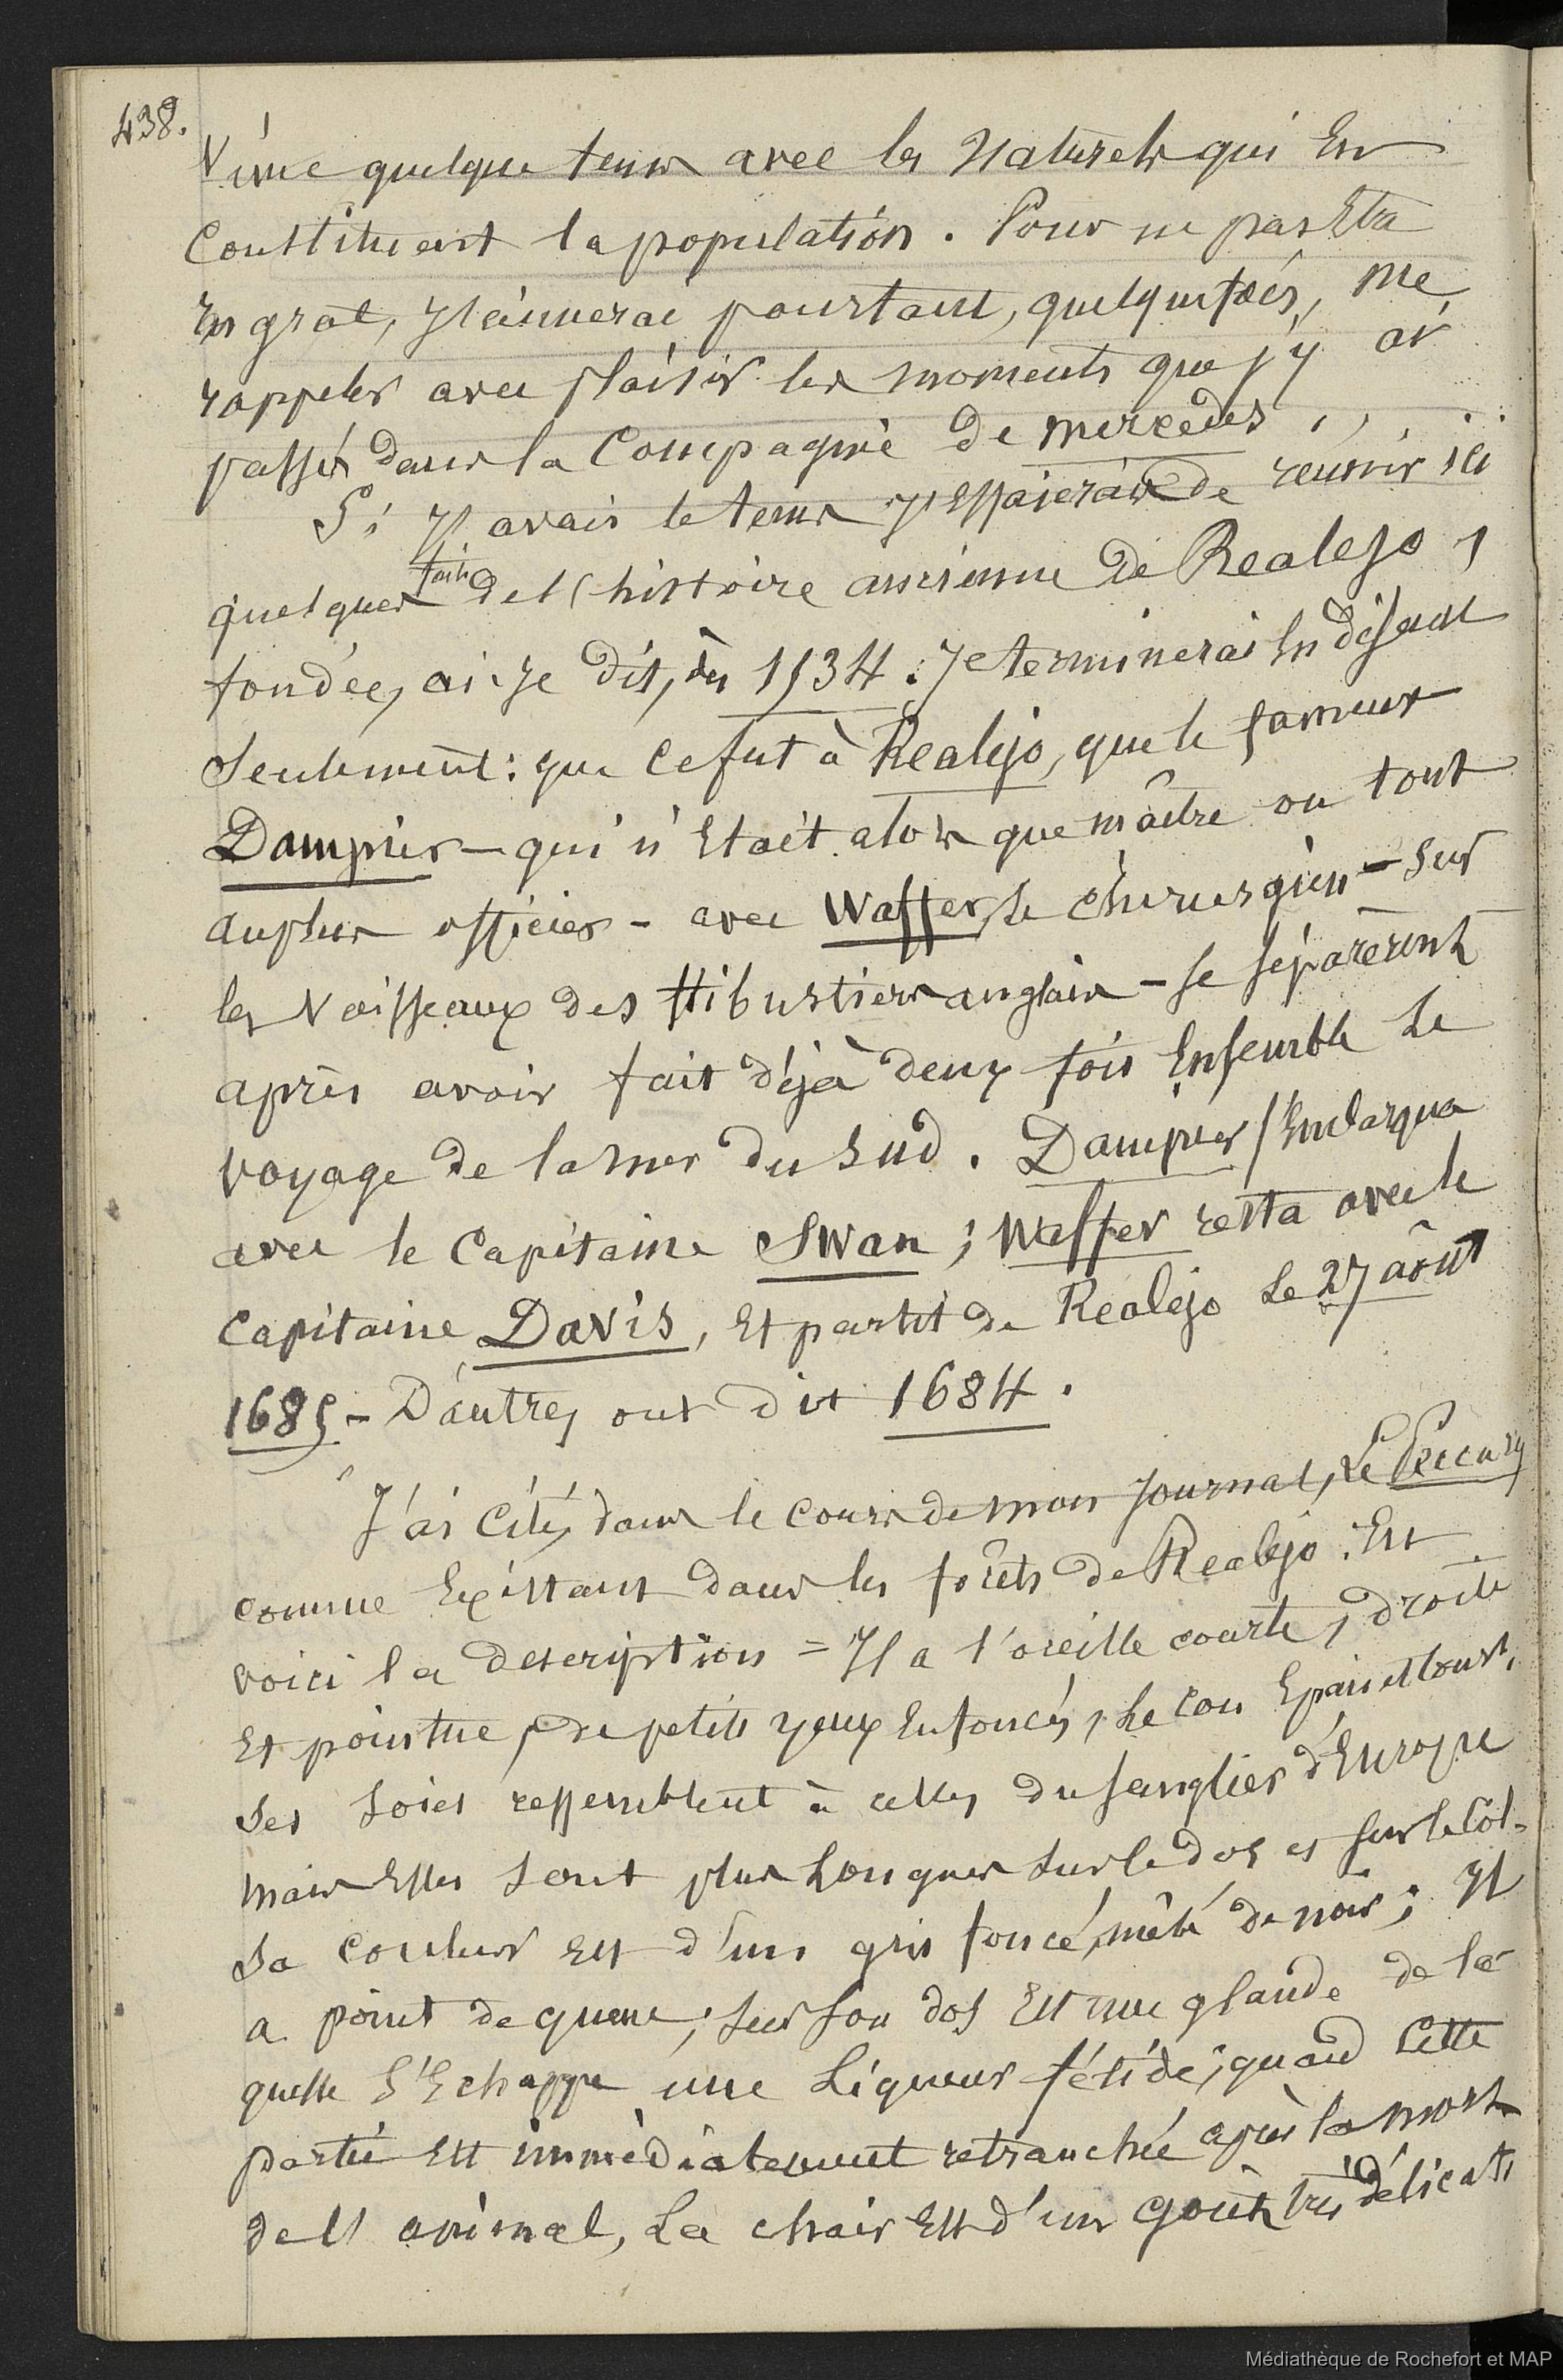 438.
Vivre quelque tems avec les Naturels qui En
Constituent la population. Pour ne pas Etre
Ingrat, J'aimerai pourtant, quelquefois, me
rappeler avec plaisir les moments que j'y ai
passés dans la Compagnie de Mercedes.
Si J'avais le tems J'Essaierais de réunir ici
quelques faits de l'histoire ancienne de Realejo,
fondée, ai-je dit, en 1534. Je terminerai En disant
Seulement: que Ce fut à Realejo, que le fameux
Dampier - qui n'Etait alors que maître ou tout
au plus officier - avec Waffer, le chirurgien - sur
les Vaisseaux des flibustiers anglais - se séparèrent
après avoir fait déjà deux fois Ensemble Le
voyage de la mer du Sud. Dampier s'Embarqua
avec le Capitaine Swan; Waffer resta avec le
Capitaine Davis, Et partit de Realejo Le 27 août
1685 - D'autres ont dit 1684.
J'ai Cité, dans le Cours de mon Journal, Le Pecary
comme Existant dans les forêts de Realejo. En
voici la description = Il a l'oreille courte, droite
Et pointue, de petits yeux Enfoncés, Le Cou Epais et Court,
Ses Soies ressemblent à celles du Sanglier d'Europe
mais Elles Sont plus Longues sur le dos et sur le Col.
Sa Couleur Est d'un gris foncé, mêlé de noir; Il
a point de queue; Sur son dos Est une glande de la
quelle S'Echappe une Liqueur fétide; quand Cette
partie Est immédiatement retranchée après la mort
de l'animal, La chair Est d'un goût très délicat
Médiathèque de Rochefort et MAP